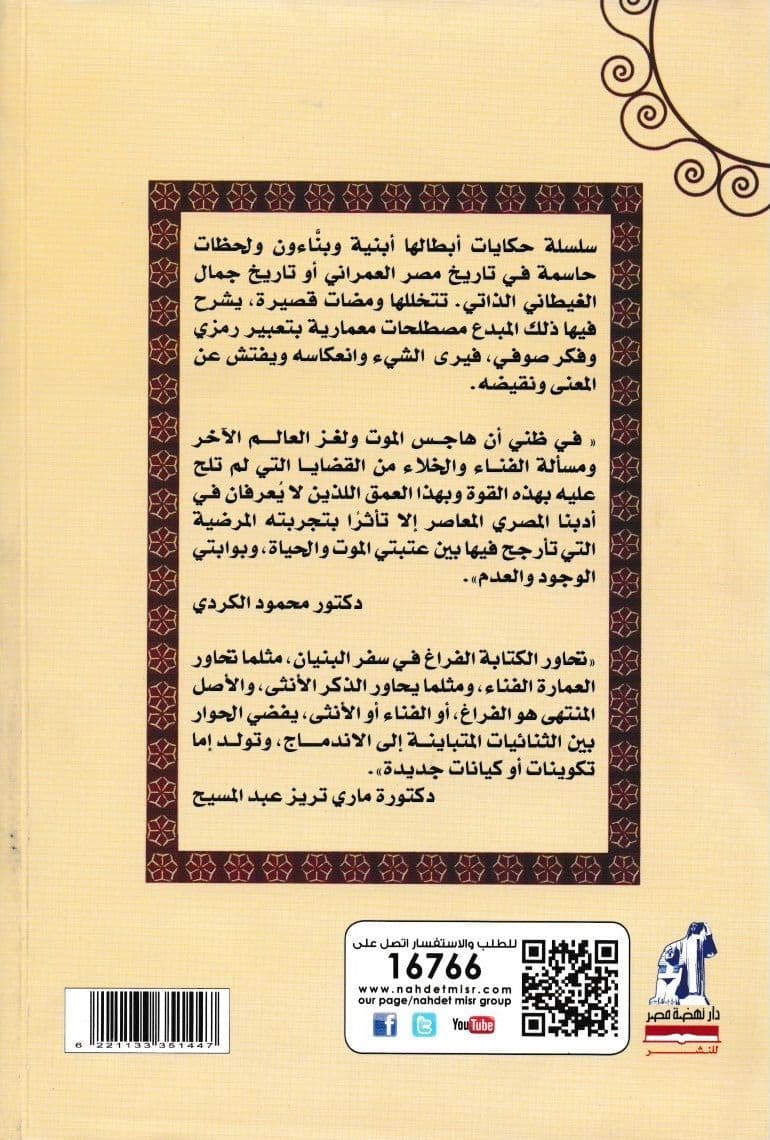 سلسلة حكايات أبطالها أبنية وبنَّاءون ولحظات
حاسمة في تاريخ مصر العمراني أو تاريخ جمال
الغيطاني الذاتي. تتخللها ومضات قصيرة، يشرح
فيها ذلك المبدع مصطلحات معمارية بتعبير رمزي
وفكر صوفي، فيرى الشيء وانعكاسه ويفتش عن
المعنى ونقيضه.
« في ظني أن هاجس الموت ولغز العالم الآخر
ومسألة الفناء والخلاء من القضايا التي لم تلح
عليه بهذه القوة وبهذا العمق اللذين لا يُعرفان في
أدبنا المصري المعاصر إلا تأثرًا بتجربته المرضية
التي تأرجح فيها بين عتبتي الموت والحياة، وبوابتي
الوجود والعدم».
دكتور محمود الكردي
«تحاور الكتابة الفراغ في سفر البنيان، مثلما تحاور
العمارة الفناء، ومثلما يحاور الذكر الأنثى، والأصل
المنتهى هو الفراغ، أو الفناء أو الأنثى، يفضي الحوار
بين الثنائيات المتباينة إلى الاندماج، وتولد إما
تكوينات أو كيانات جديدة».
دكتورة ماري تريز عبد المسيح
للطلب والاستفسار اتصل على
16766
www.nahdetmisr.com
our page/nahdet misr group
f t YouTube
دار نهضة مصر
للنشر
6 221133 351447